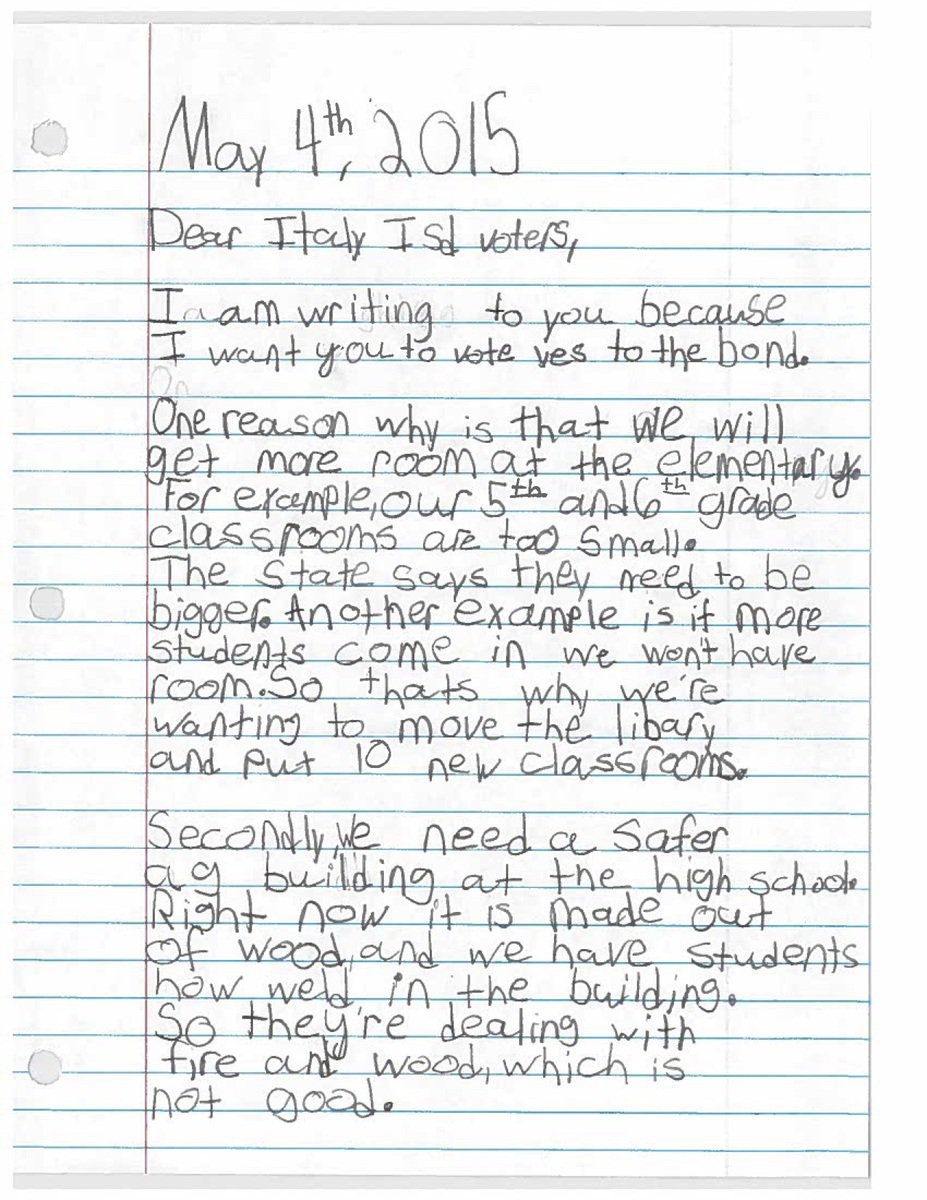 May 4th, 2015
Dear Italy Isd voters,
I am writing to you because
I want you to vote yes to the bond.
One reason why is that we will
get more room at the elementary.
For example, our 5th and 6th grade
classrooms are too small.
The state says they need to be
bigger. Another example is if more
students come in we won't have
room. So thats why we're
wanting to move the libary
and put 10 new classrooms.
Secondly, we need a safer
ag building at the high school.
Right now it is made out
of wood, and we have students
how weld in the building.
So they're dealing with
fire and wood, which is
not good.